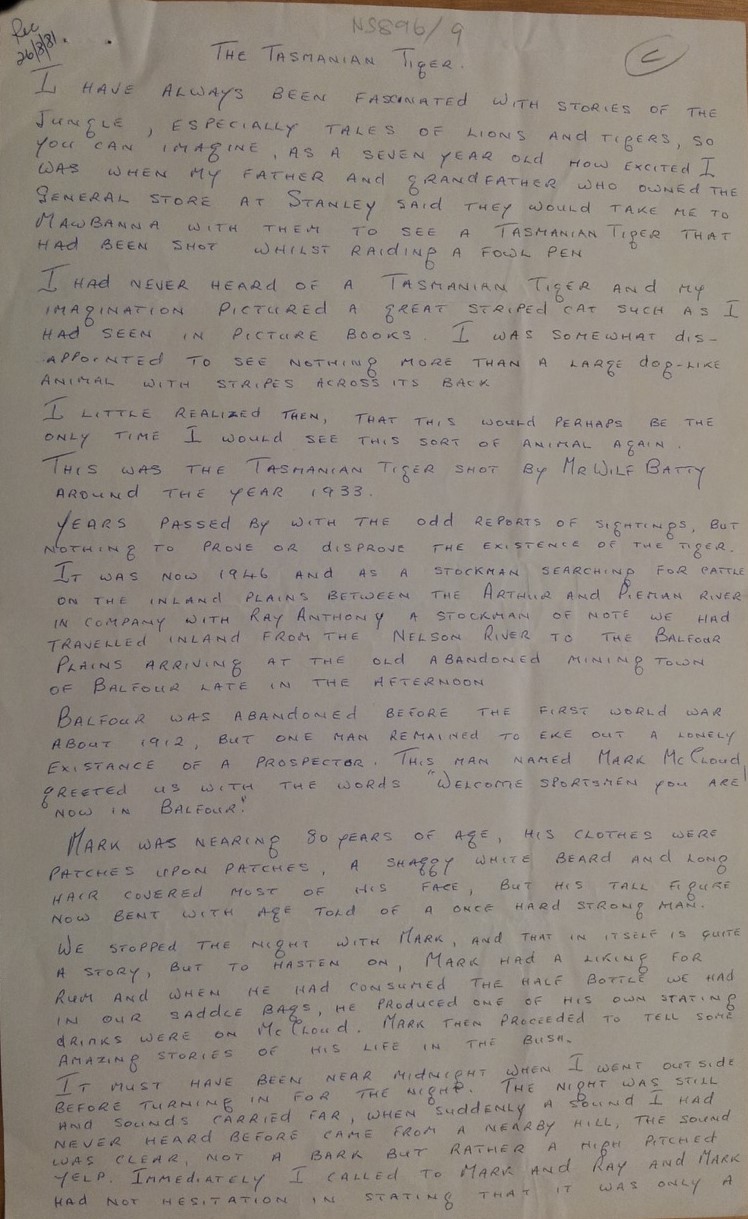 Rec
26/3/81.
NS896/9
C
THE TASMANIAN TIGER.
I HAVE ALWAYS BEEN FASCINATED WITH STORIES OF THE
JUNGLE, ESPECIALLY TALES OF LIONS AND TIGERS, SO
YOU CAN IMAGINE, AS A SEVEN YEAR OLD HOW EXCITED I
WAS WHEN MY FATHER AND GRANDFATHER WHO OWNED THE
GENERAL STORE AT STANLEY SAID THEY WOULD TAKE ME TO
MAWBANNA WITH THEM TO SEE A TASMANIAN TIGER THAT
HAD BEEN SHOT WHILST RAIDING A FOWL PEN
I HAD NEVER HEARD OF A TASMANIAN TIGER AND MY
IMAGINATION PICTURED A GREAT STRIPED CAT SUCH AS I
HAD SEEN IN PICTURE BOOKS. I WAS SOMEWHAT DIS-
APPOINTED TO SEE NOTHING MORE THAN A LARGE DOG-LIKE
ANIMAL WITH STRIPES ACROSS ITS BACK
I LITTLE REALIZED THEN, THAT THIS WOULD PERHAPS BE THE
ONLY TIME I WOULD SEE THIS SORT OF ANIMAL AGAIN.
THIS WAS THE TASMANIAN TIGER SHOT BY MR WILF BATTY
AROUND THE YEAR 1933.
YEARS PASSED BY WITH THE ODD REPORTS OF SIGHTINGS, BUT
NOTHING TO PROVE OR DISPROVE THE EXISTENCE OF THE TIGER.
IT WAS NOW 1946 AND AS A STOCKMAN SEARCHING FOR CATTLE
ON THE INLAND PLAINS BETWEEN THE ARTHUR AND PIEMAN RIVER
IN COMPANY WITH RAY ANTHONY A STOCKMAN OF NOTE WE HAD
TRAVELLED INLAND FROM THE NELSON RIVER TO THE BALFOUR
PLAINS ARRIVING AT THE OLD ABANDONED MINING TOWN
OF BALFOUR LATE IN THE AFTERNOON
BALFOUR WAS ABANDONED BEFORE THE FIRST WORLD WAR
ABOUT 1912, BUT ONE MAN REMAINED TO EKE OUT A LONELY
EXISTANCE OF A PROSPECTOR. THIS MAN NAMED MARK McCLOUD
GREETED US WITH THE WORDS "WELCOME SPORTSMEN YOU ARE
NOW IN BALFOUR!"
MARK WAS NEARING 80 YEARS OF AGE, HIS CLOTHES WERE
PATCHES UPON PATCHES, A SHAGGY WHITE BEARD AND LONG
HAIR COVERED MOST OF HIS FACE, BUT HIS TALL FIGURE
NOW BENT WITH AGE TOLD OF A ONCE HARD STRONG MAN.
WE STOPPED THE NIGHT WITH MARK, AND THAT IN ITSELF IS QUITE
A STORY, BUT TO HASTEN ON, MARK HAD A LIKING FOR
RUM AND WHEN HE HAD CONSUMED THE HALF BOTTLE WE HAD
IN OUR SADDLE BAGS, HE PRODUCED ONE OF HIS OWN STATING
DRINKS WERE ON McCLOUD. MARK THEN PROCEEDED TO TELL SOME
AMAZING STORIES OF HIS LIFE IN THE BUSH.
IT MUST HAVE BEEN NEAR MIDNIGHT WHEN I WENT OUTSIDE
BEFORE TURNING IN FOR THE NIGHT. THE NIGHT WAS STILL
AND SOUNDS CARRIED FAR, WHEN SUDDENLY A SOUND I HAD
NEVER HEARD BEFORE CAME FROM A NEARBY HILL, THE SOUND
WAS CLEAR, NOT A BARK BUT RATHER A HIGH PITCHED
YELP. IMMEDIATELY I CALLED TO MARK AND RAY AND MARK
HAD NOT HESITATION IN STATING THAT IT WAS ONLY A